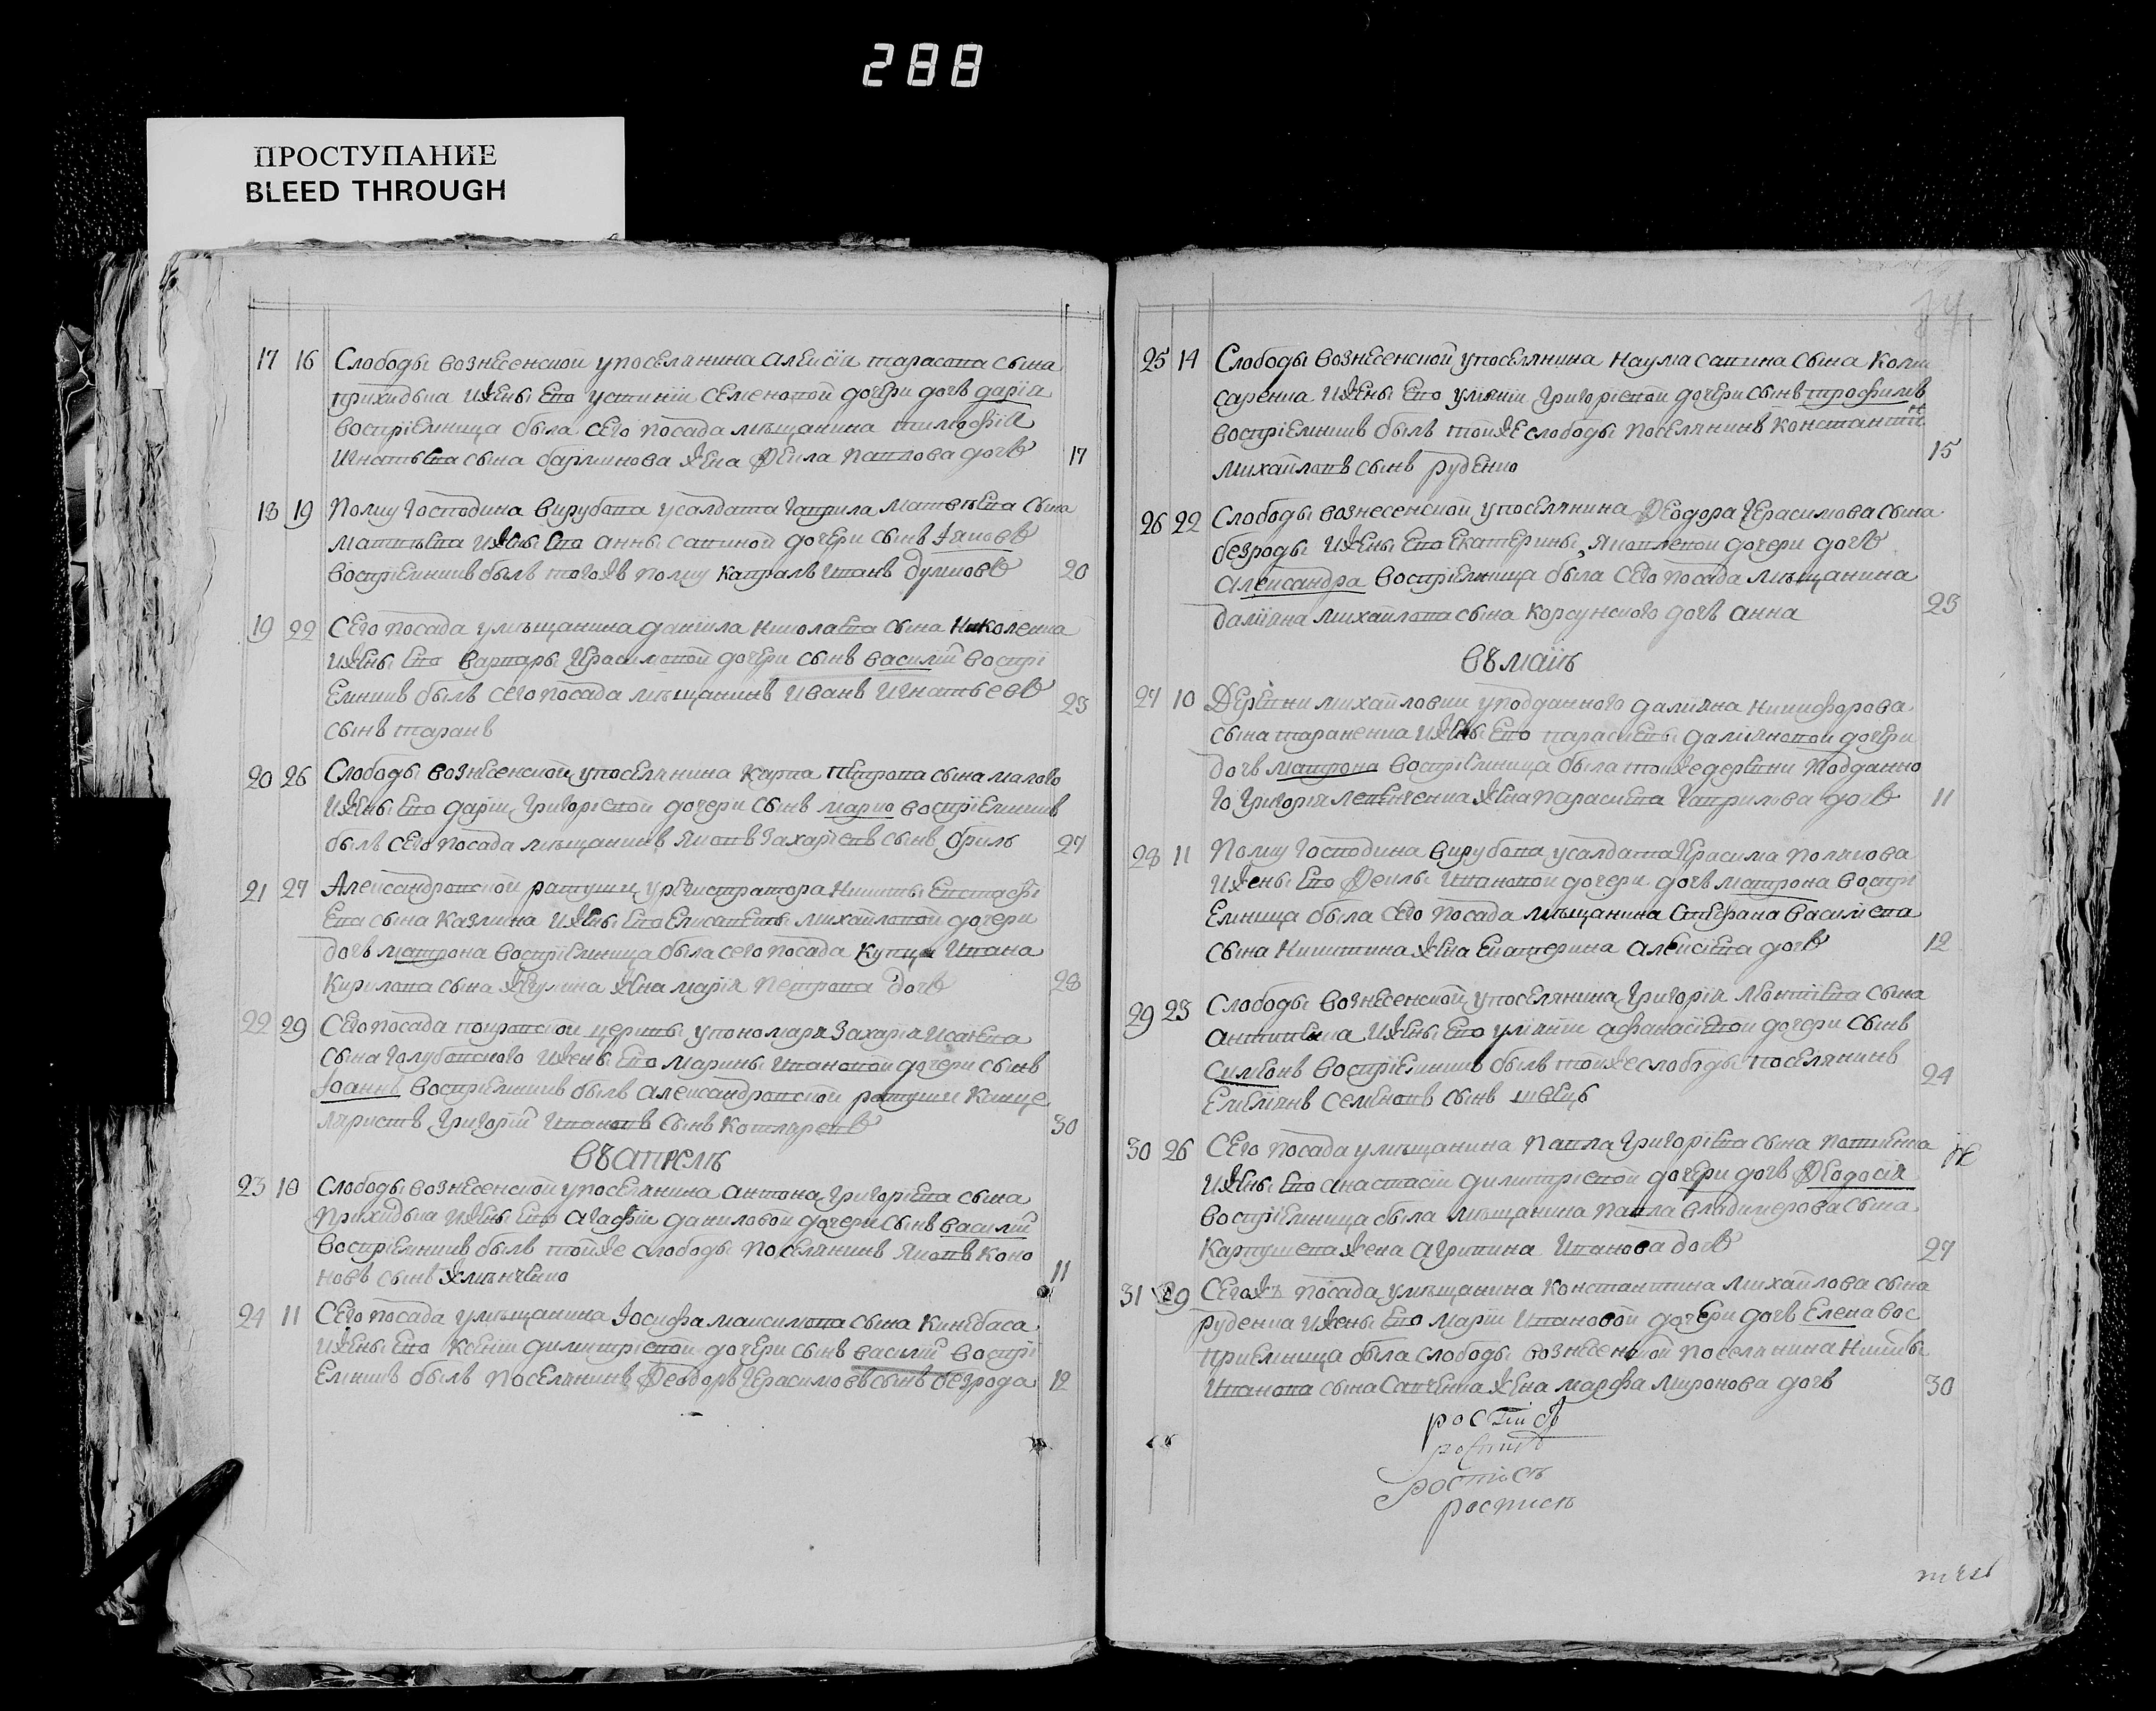 288
ПРОСТУПАНИЕ
BLEED THROUGH
17 16 Слободы вознесенской упоселянина алексїя тарасова сына
прихидька ижены его устинїи семеновой дочери дочь дарїя
воспрїемница была сего посада мѣщанина тимофѣя
игнатьева сына барминова жена Феклa павлова дочь 17
18 19 Полку господина вырубова усалдата гаврила матвѣева сына
матвѣева ижены его анны савиной дочери сынъ Іаковъ
воспрїемникъ былъ тогожъ полку капралъ иванъ думковъ 20
19 22 Сего посада умѣщанина данїила николаева сына николенка
ижены его варвары герасимовой дочери сынъ василїй воспрї
емникъ былъ сего посада мѣщанинъ иванъ игнатьевъ 23
сынъ таранъ
20 26 Слободы вознесенской упоселянина карпа петрова сына малово
ижены его дарїи григорїевой дочери сынъ марко воспрїемникъ
былъ сего посада мѣщанинъ яковъ захарїевъ сынъ бриль 27
21 27 Александровской ратуши урегистратора никиты евстафї
ева сына казлина ижены его елисаветы михайловой дочери
дочь матрона воспрїемница была сего посада купца ивана
кирилова сына жена марїя петрова дочь 28
22 29 Сего посада покровской церкви упономаря захарїя исаева
сына голубовского ижены его марины ивановой дочери сынъ
Іоаннъ воспрїемникъ былъ александровской ратуши канце
ляристъ григорїй ивановъ сынъ котляревъ 30
въ апрелѣ
23 10 Слободы вознесенской упоселянина антона григорїева сына
прихидька ижены его агафїи даниловой дочери сынъ василїй
воспрїемникъ былъ тойже слободы поселянинъ яковъ коно
новъ сынъ 11
24 11 Сего посада умѣщанина Іосифа максимова сына кинебаса
ижены его ксенїи димитрїевой дочери сынъ василїй воспрї
емникъ былъ поселянинъ Феодоръ герасимовъ сынъ безрода 12
25 14 Слободы вознесенской упоселянина наума савина сына коми
саренка ижены его улїянїи григорїевой дочери сынъ трофимъ
воспрїемникъ былъ тойже слободы поселянинъ константи н
михайловъ сынъ руденко 15
26 22 Слободы вознесенской упоселянина Феодора герасимова сына
безроды ижены его екатерины яковлевой дочери дочь
александра воспрїемница была сего посада мѣщанина
дамїяна михайлова сына корсунского дочь анна 23
въ маїѣ
27 10 Деревни михайловки уподданного дамїяна никифорова
сына тараненка ижены его парасковьи дамїяновой дочери
дочь матрона воспрїемница была тойже деревни подданно
го григорїя жена гаврилова дочь 11
28 11 Полку господина вырубова усалдата герасима полякова
ижены его Феклы ивановой дочери дочь матрона воспрї
емница была сего посада мѣщанина стефана василїева
сына никитина жена екатерина алексїева дочь 12
29 23 Слободы вознесенской упоселянина григорїя сына
ижены его улїянїи афанасїевой дочери сынъ
симеонъ воспрїемникъ былъ тойже слободы поселянинъ 24
емелїянъ семеновъ сынъ швець
30 26 Сего посада умѣщанина павла григорїева сына
ижены его анастасїи димитрїевой дочери дочь Феодосїя
воспрїемница была мѣщанина павла владимерова сына
жена агрипина иванова дочь 27
31 29 Сегожъ посада умѣщанина константина михайлова сына
руденка ижены его марїи ивановой дочери дочь елена вос
приемница была слободы вознесенской поселянина никиты
иванова сына савченка жена марфа миронова дочь 30
роспись
роспись
роспись
роспись